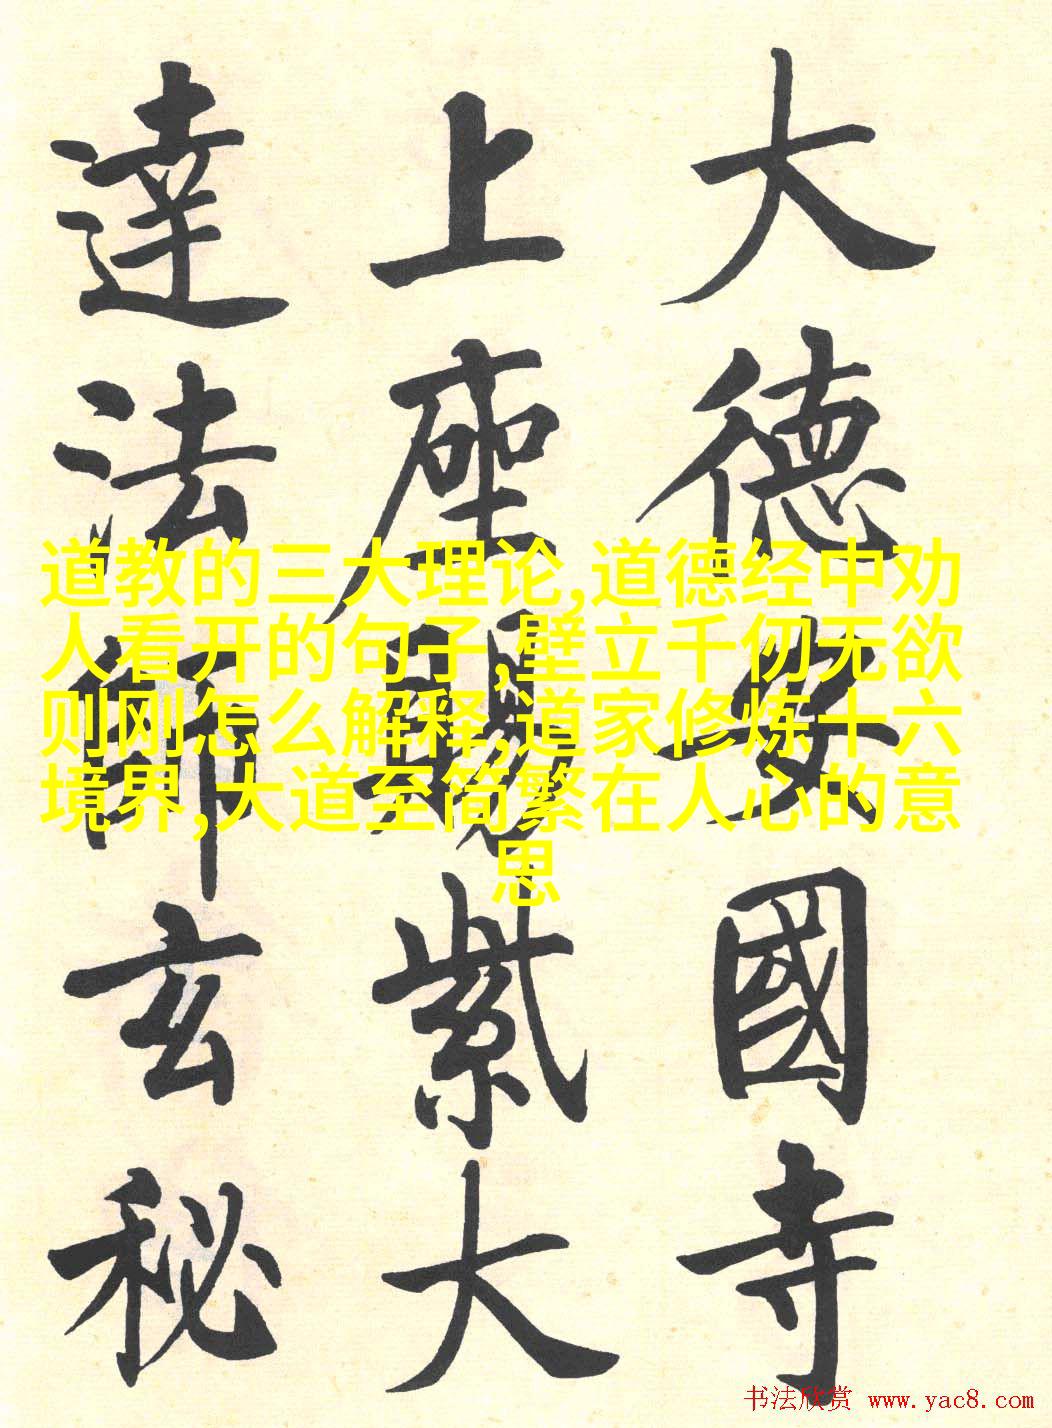 大德安國寺
上座賜紫大
達法師玄秘
道教的三大理论,道德经中劝
人看开的句子,壁立千仞无欲
则刚怎么解释,道家修炼十六
境界,大道至简繁在人心的意
思
书法欣赏 www.yac8.com